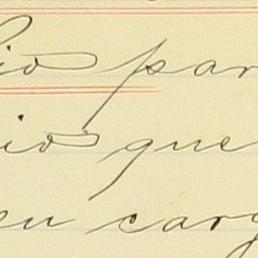 io par
io que
eu carg